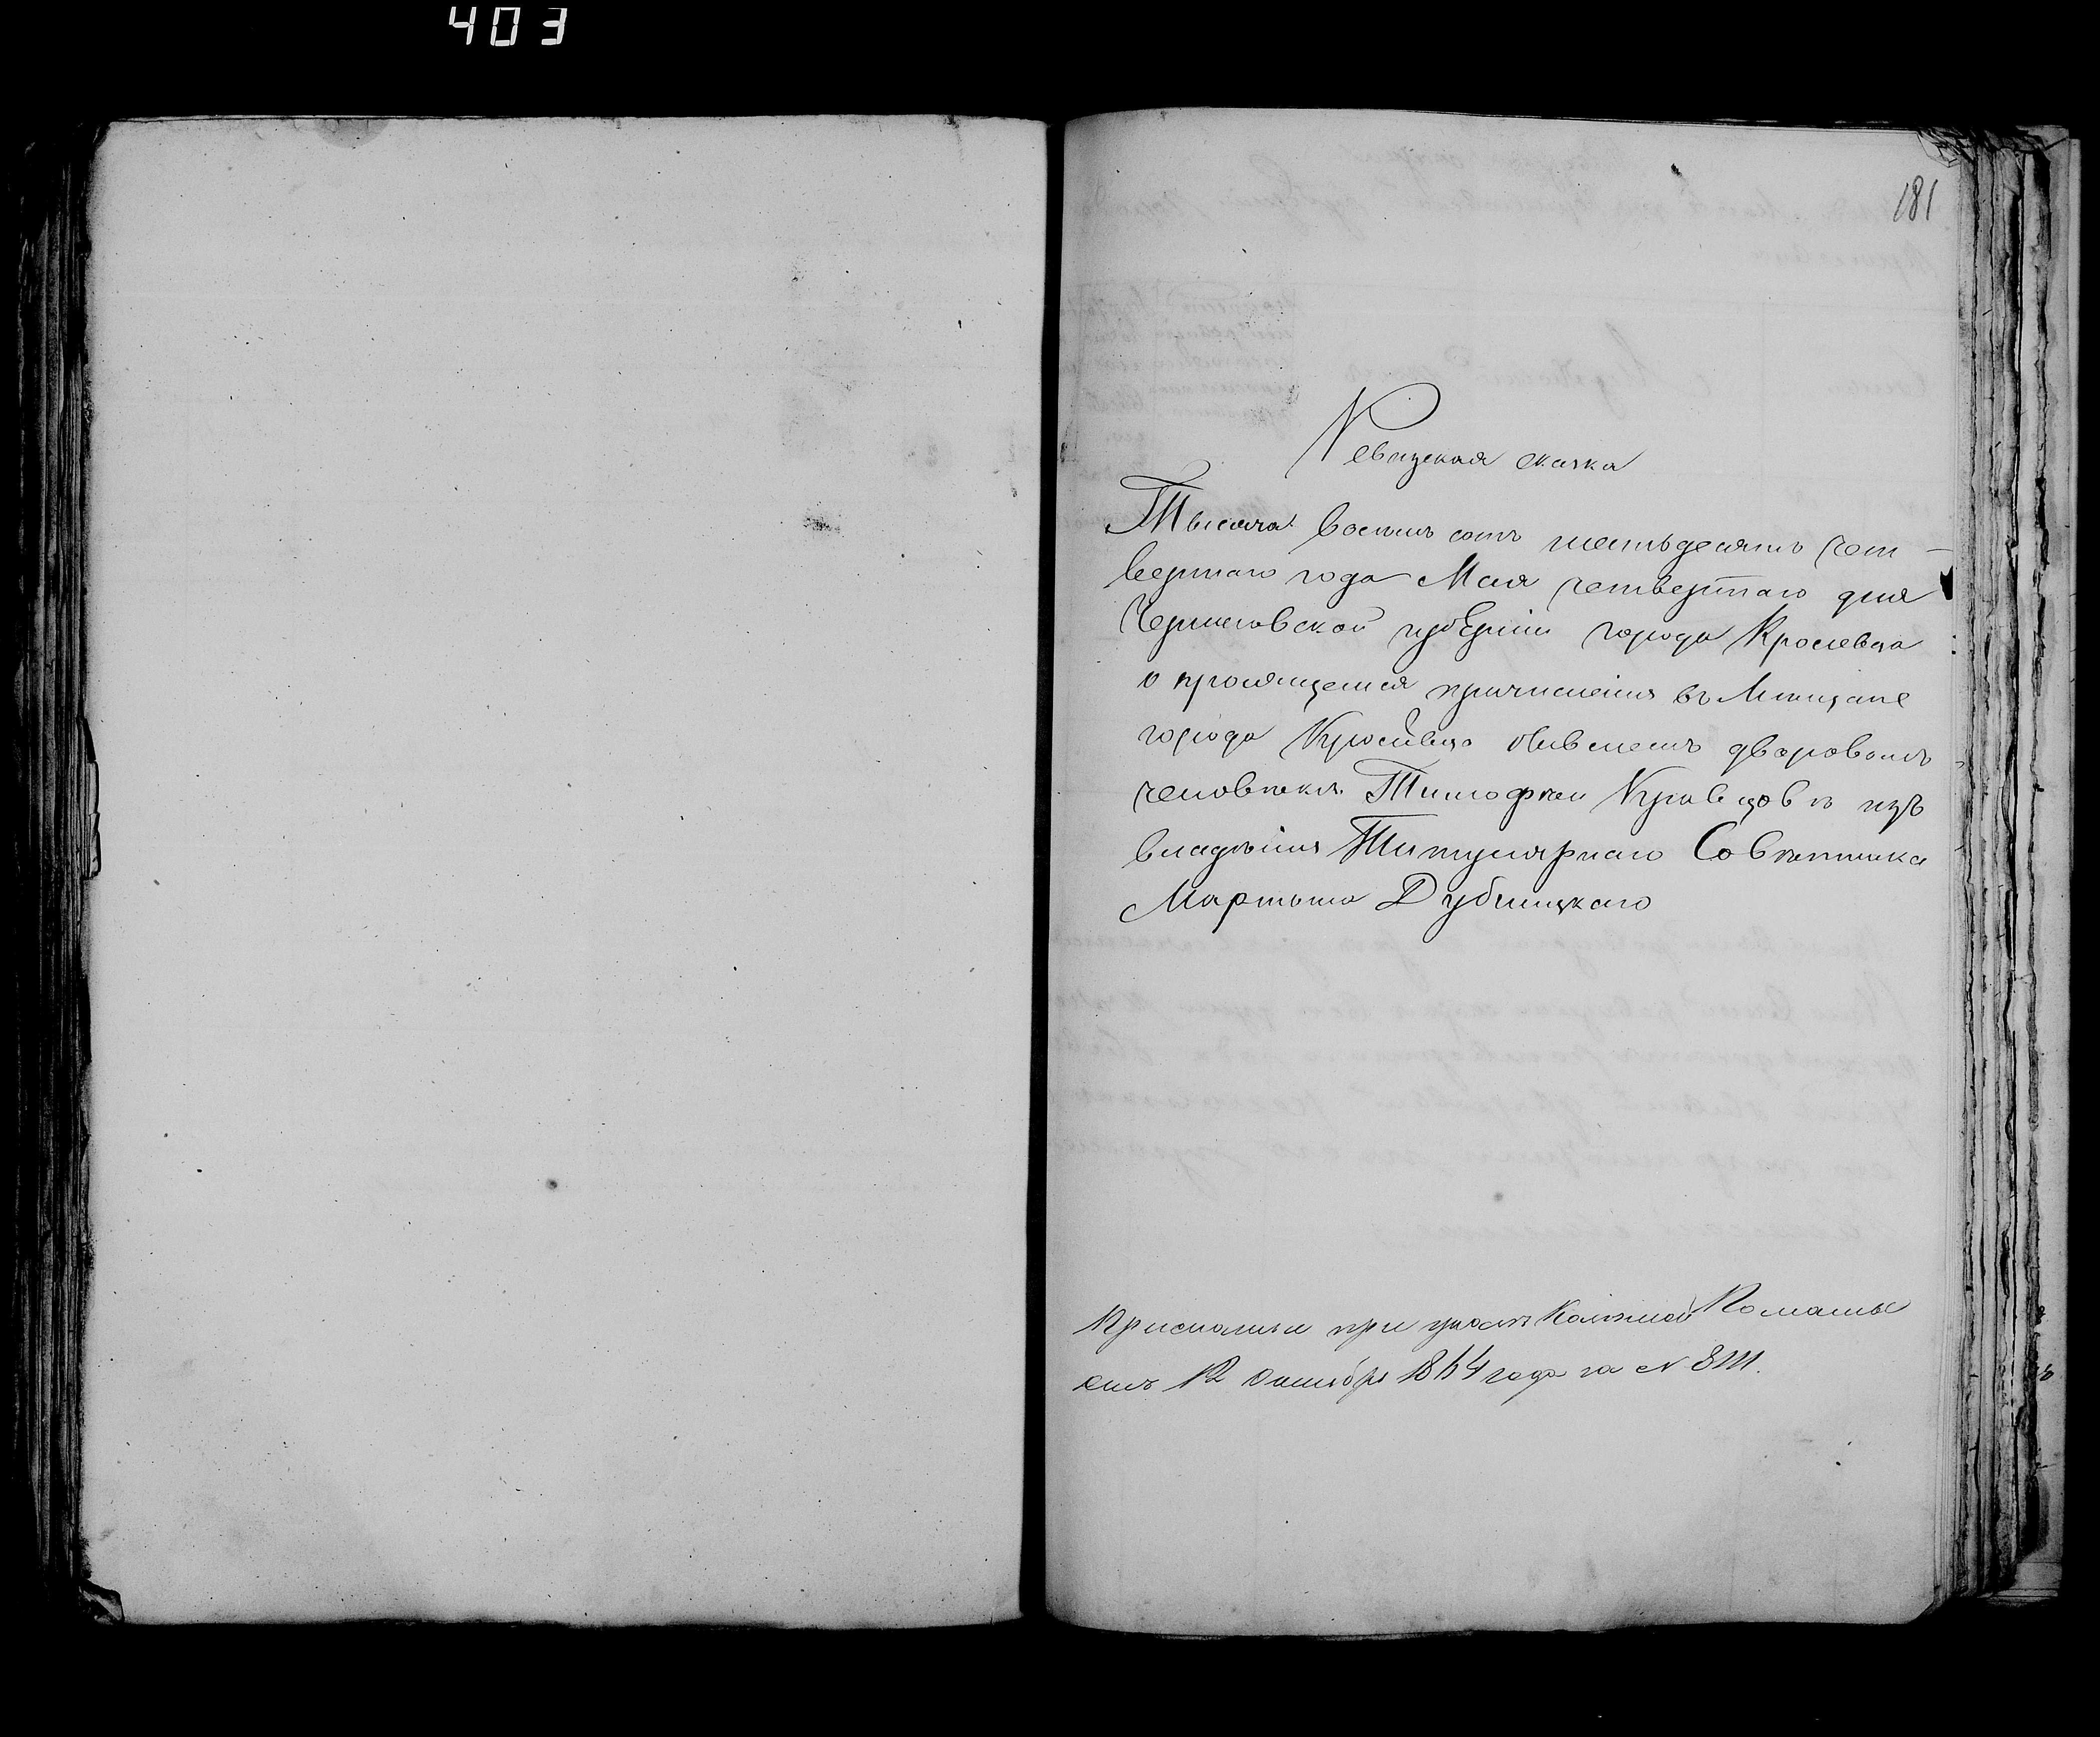 403
181
Ревизская сказка
Тысяча восемь сотъ шестьдесятъ чет-
вертаго года Мая четвертаго дня
Черниговской губерніи города Кролевца
о просящемся причисленія въ Мѣщане
города Кролевца бывшемъ дворовомъ
человѣкѣ Тимофѣи Кравцовѣ изъ
владѣнія Титулярнаго Совѣтника
Мартына Дубницкаго
Присланы при указѣ Казенной Полаты
отъ 12 Октября 1864 года за № 8111.